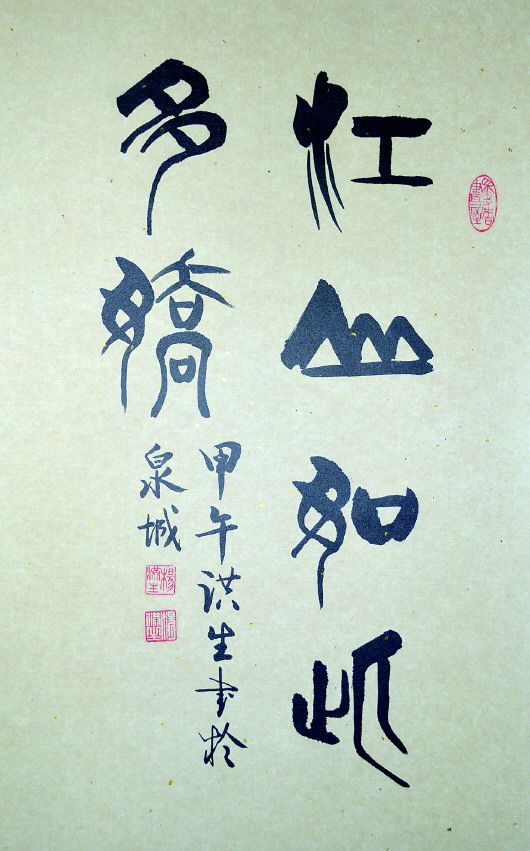 江山如此
多嬌
甲午洪生书於
泉城